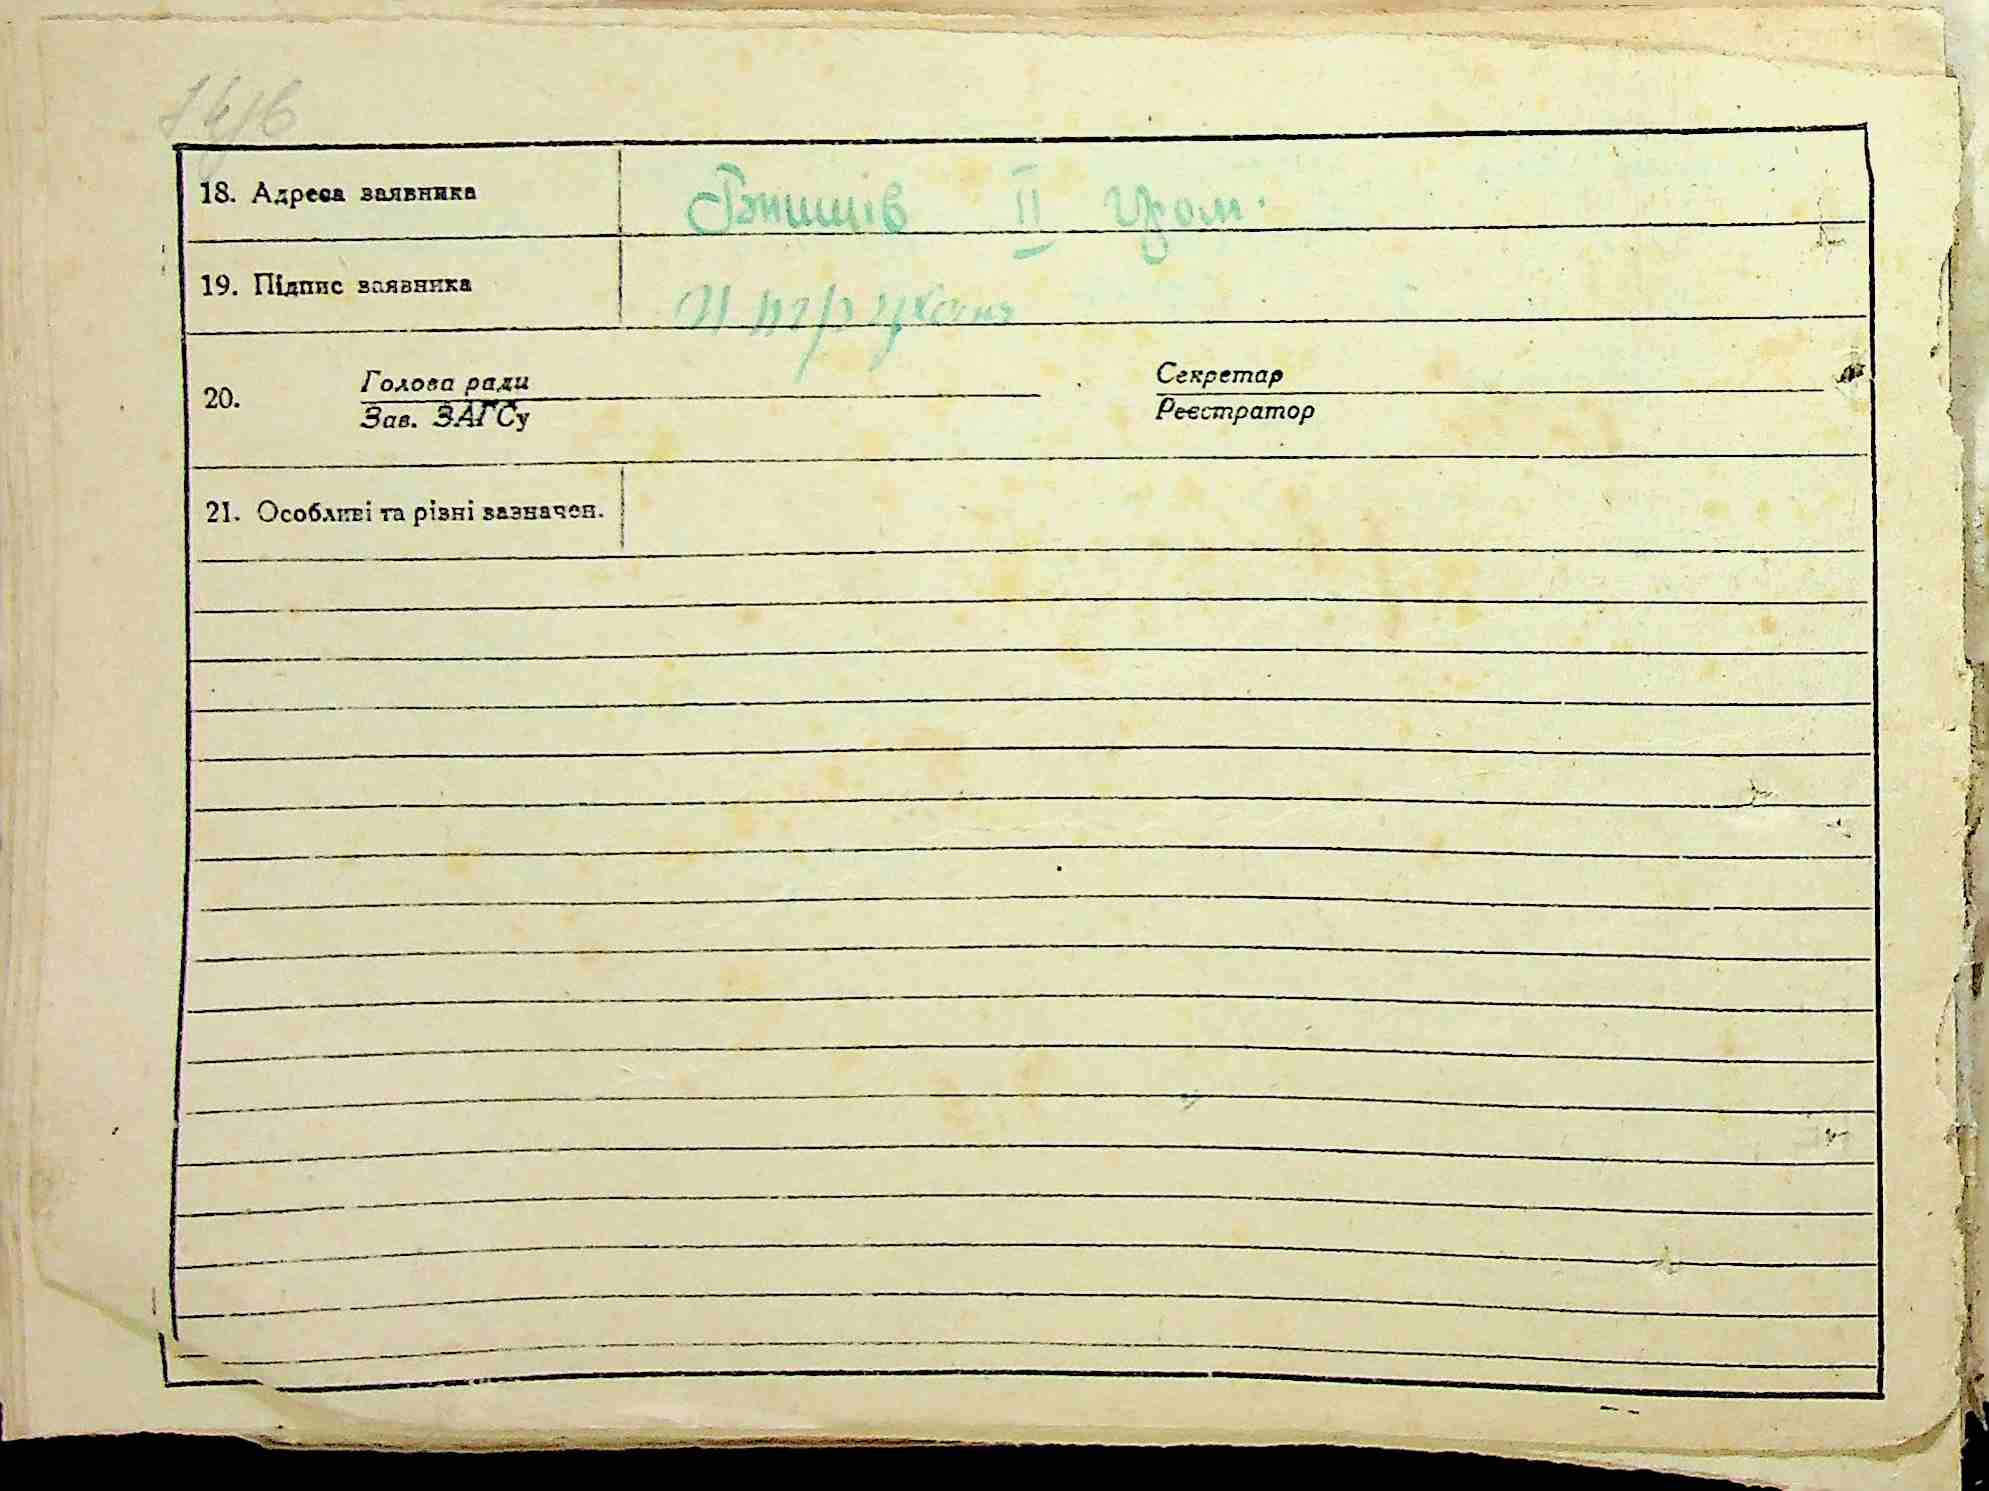 18. Адреса заявника
ІІ гром.
19. Підпис заявника
20.
Голова ради
Зав. ЗАГСу
Секретар
Реєстратор
21. Особливі та різні зазначен.